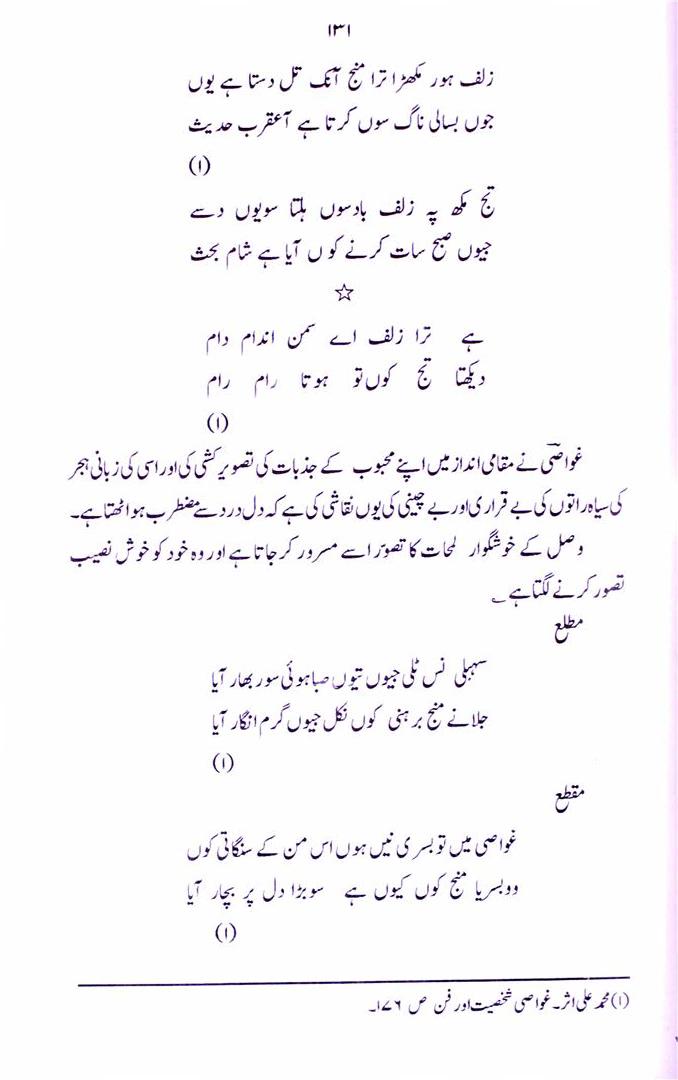 ۱۳۱
زلف ہور مکھڑا ترا منج آنک تل دستا ہے یوں
جوں بسالی ناگ سوں کرتا ہے آ عقرب حدیث
(۱)
تج مکھ پہ زلف بادسوں ہلتا سویوں دسے
جیوں صبح سات کرنے کوں آیا ہے شام بحث
☆
ہے ترا زلف اے سمن اندام دام
دیکھتا تج کوں تو ہوتا رام رام
(۱)
غواصیؔ نے مقامی انداز میں اپنے محبوب کے جذبات کی تصویر کشی کی اور اسی کی زبانی ہجر
کی سیاہ راتوں کی بے قراری اور بے چینی کی یوں نقاشی کی ہے کہ دل درد سے مضطرب ہو اٹھتا ہے۔
وصل کے خوشگوار لمحات کا تصوّر اسے مسرور کر جاتا ہے اور وہ خود کو خوش نصیب
تصور کرنے لگتا ہے ؎
مطلع
سہیلی نس ٹلی جیوں تیوں صبا ہوئی سور بھار آیا
جلانے منج برہنی کوں نکل جیوں گرم انگار آیا
(۱)
مقطع
غواصی میں تو بسری نیں ہوں اس من کے سنگاتی کوں
وو بسریا منج کوں کیوں ہے سو بڑا دل پر بچار آیا
(۱)
(۱) محمد علی اثر۔ غواصی شخصیت اور فن ص ۱۷۶۔